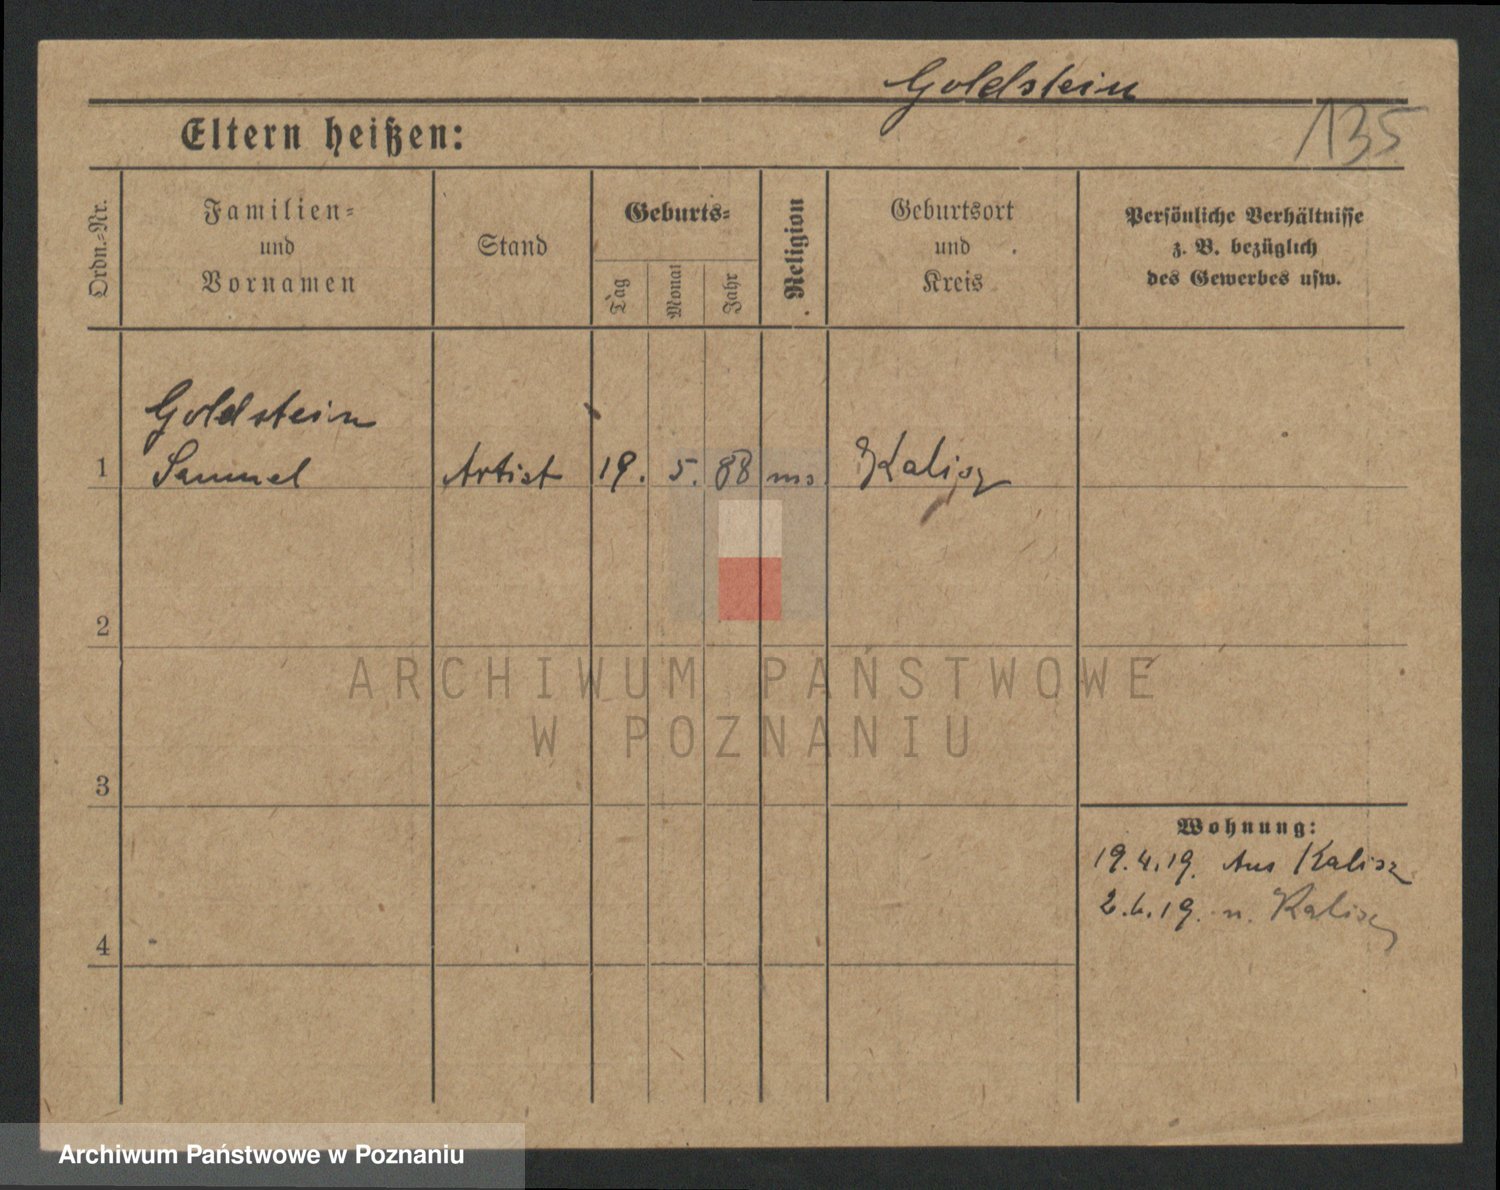 Goldstein
Eltern heißen:
135
Ordn.-Nr.
Familien-
und
Vornamen
Stand
Geburts-
Tag
Monat
Jahr
Religion
Geburtsort
und
Kreis
Persönliche Verhältnisse
z. B. bezüglich
des Gewerbes usw.
Goldstein
1 Samuel Artist 19. 5. 88 mos Kalisz
2
3
4
Wohnung:
19.4.19. Aus Kalisz
2.6.19. n. Kalisz
ARCHIWUM PAŃSTWOWE
W POZNANIU
Archiwum Państwowe w Poznaniu